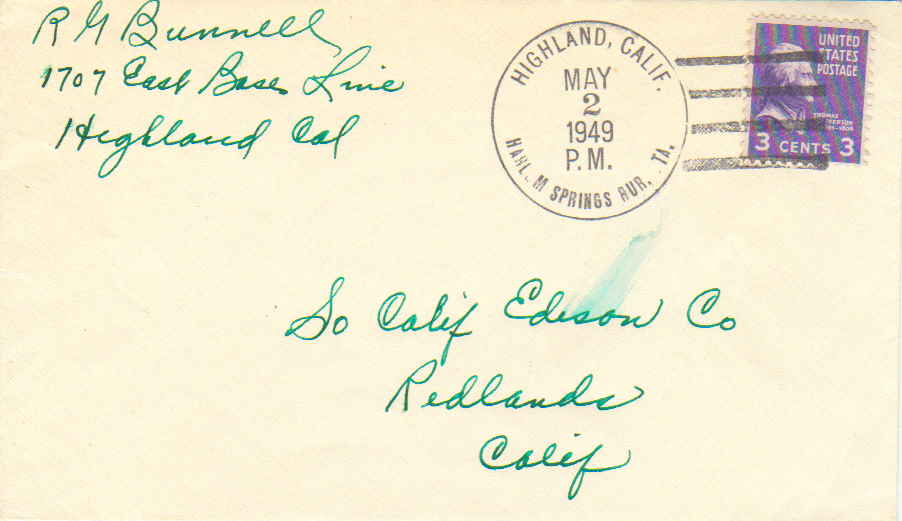 R G Bunnell
1707 East Base Line
Highland Cal
HIGHLAND, CALIF.
MAY
2
1949
P.M.
SPRINGS RUR. TA.
UNITED
STATES
POSTAGE
THOMAS
3 CENTS 3
So Calif Edison Co
Redlands
Calif